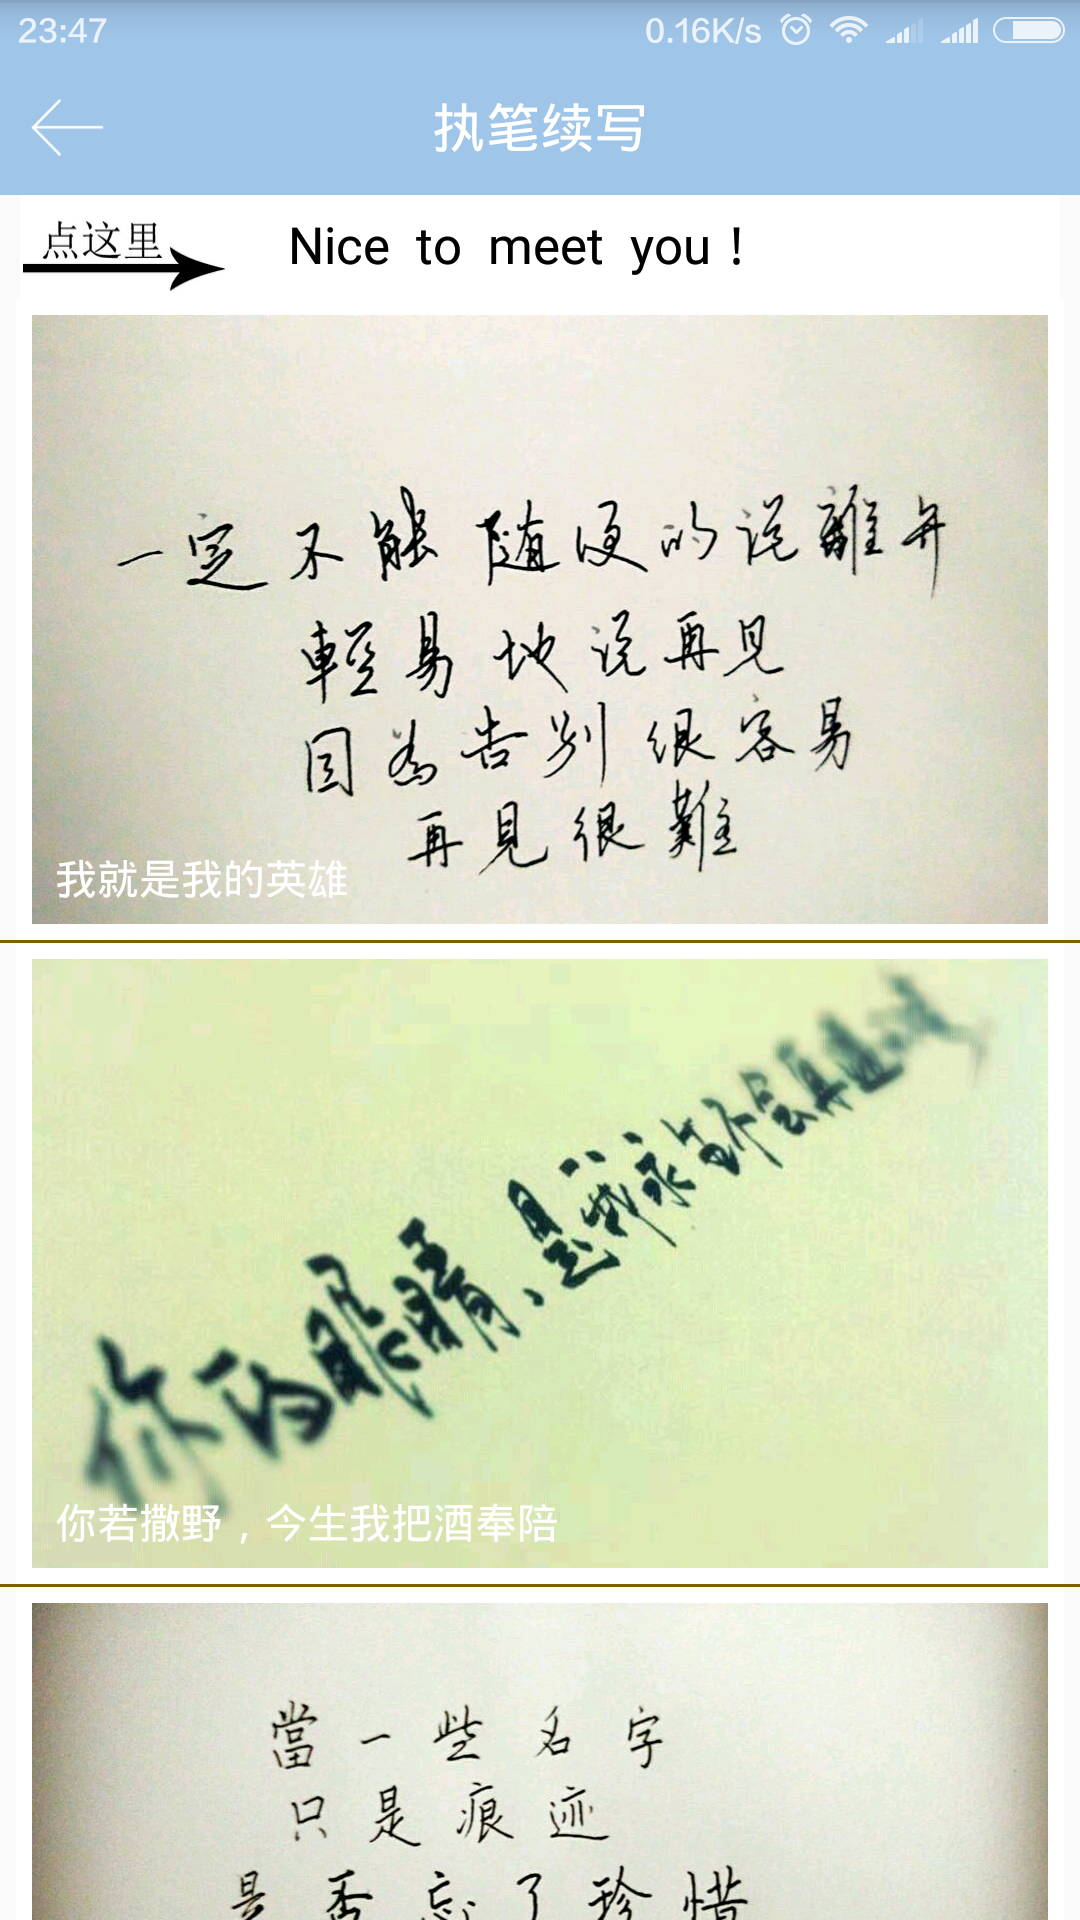 23:47
0.16K/s
执笔续写
点这里
Nice to meet you！
一定不能随便的说離开
輕易地说再见
因為告别很容易
再見很難
我就是我的英雄
你的眼睛、是我永生不会再遇
你若撒野，今生我把酒奉陪
當一些名字
只是痕迹
是否忘了珍惜